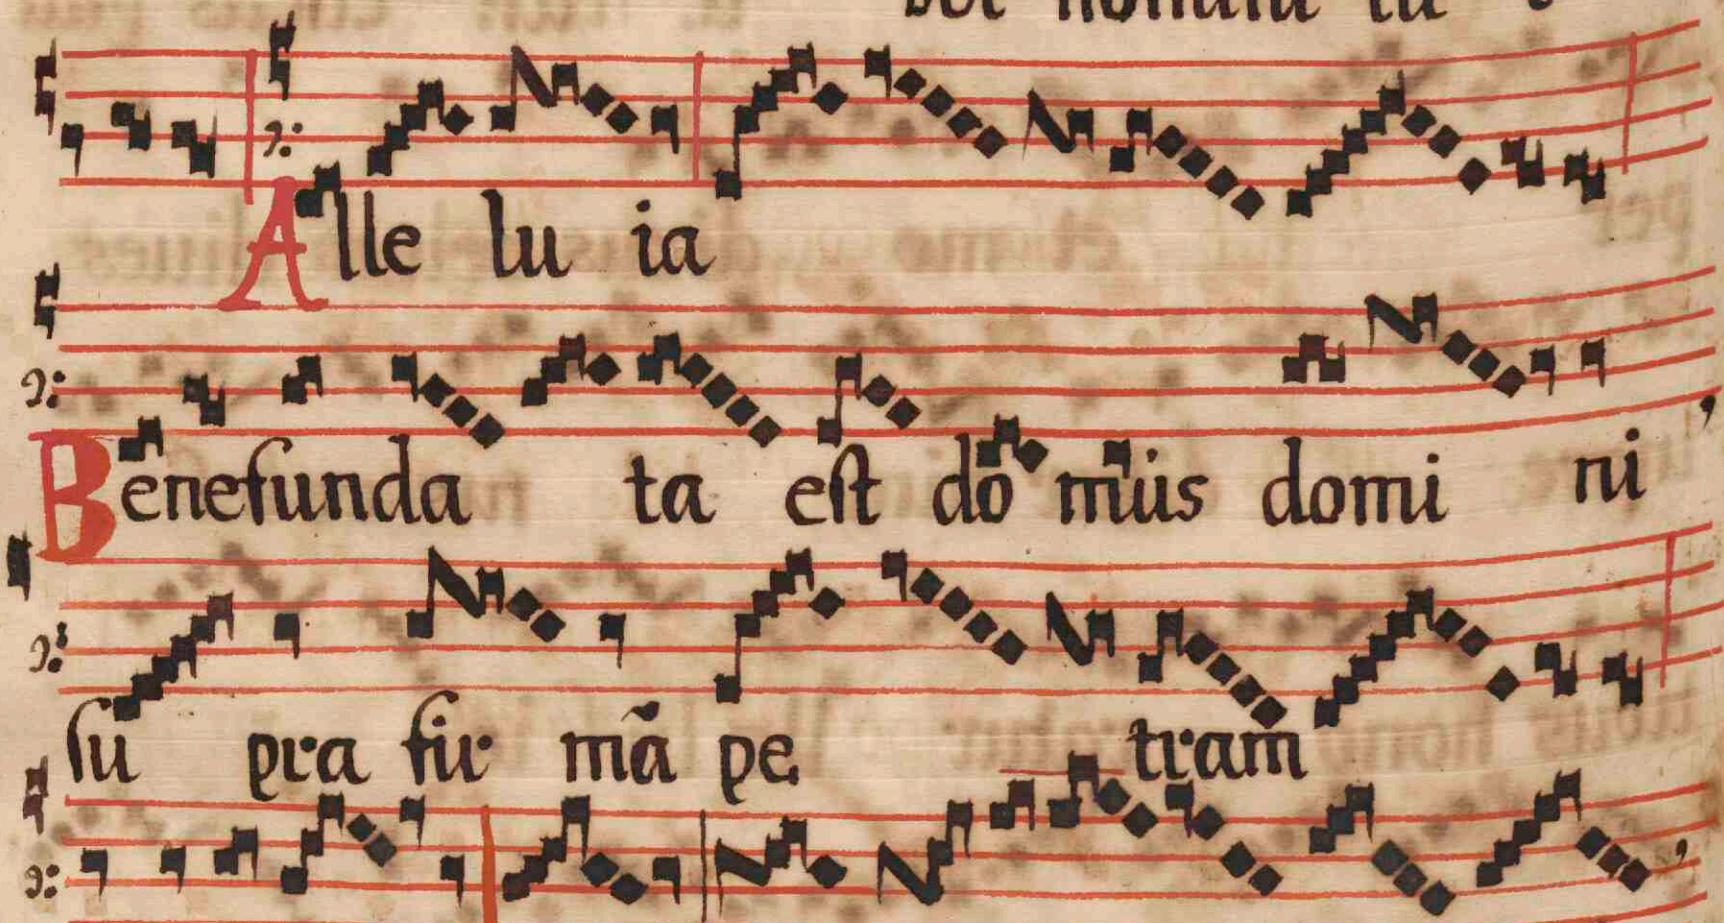 Alle lu ia
Benefunda ta est do mus domi ni
su pra fir mā pe tram